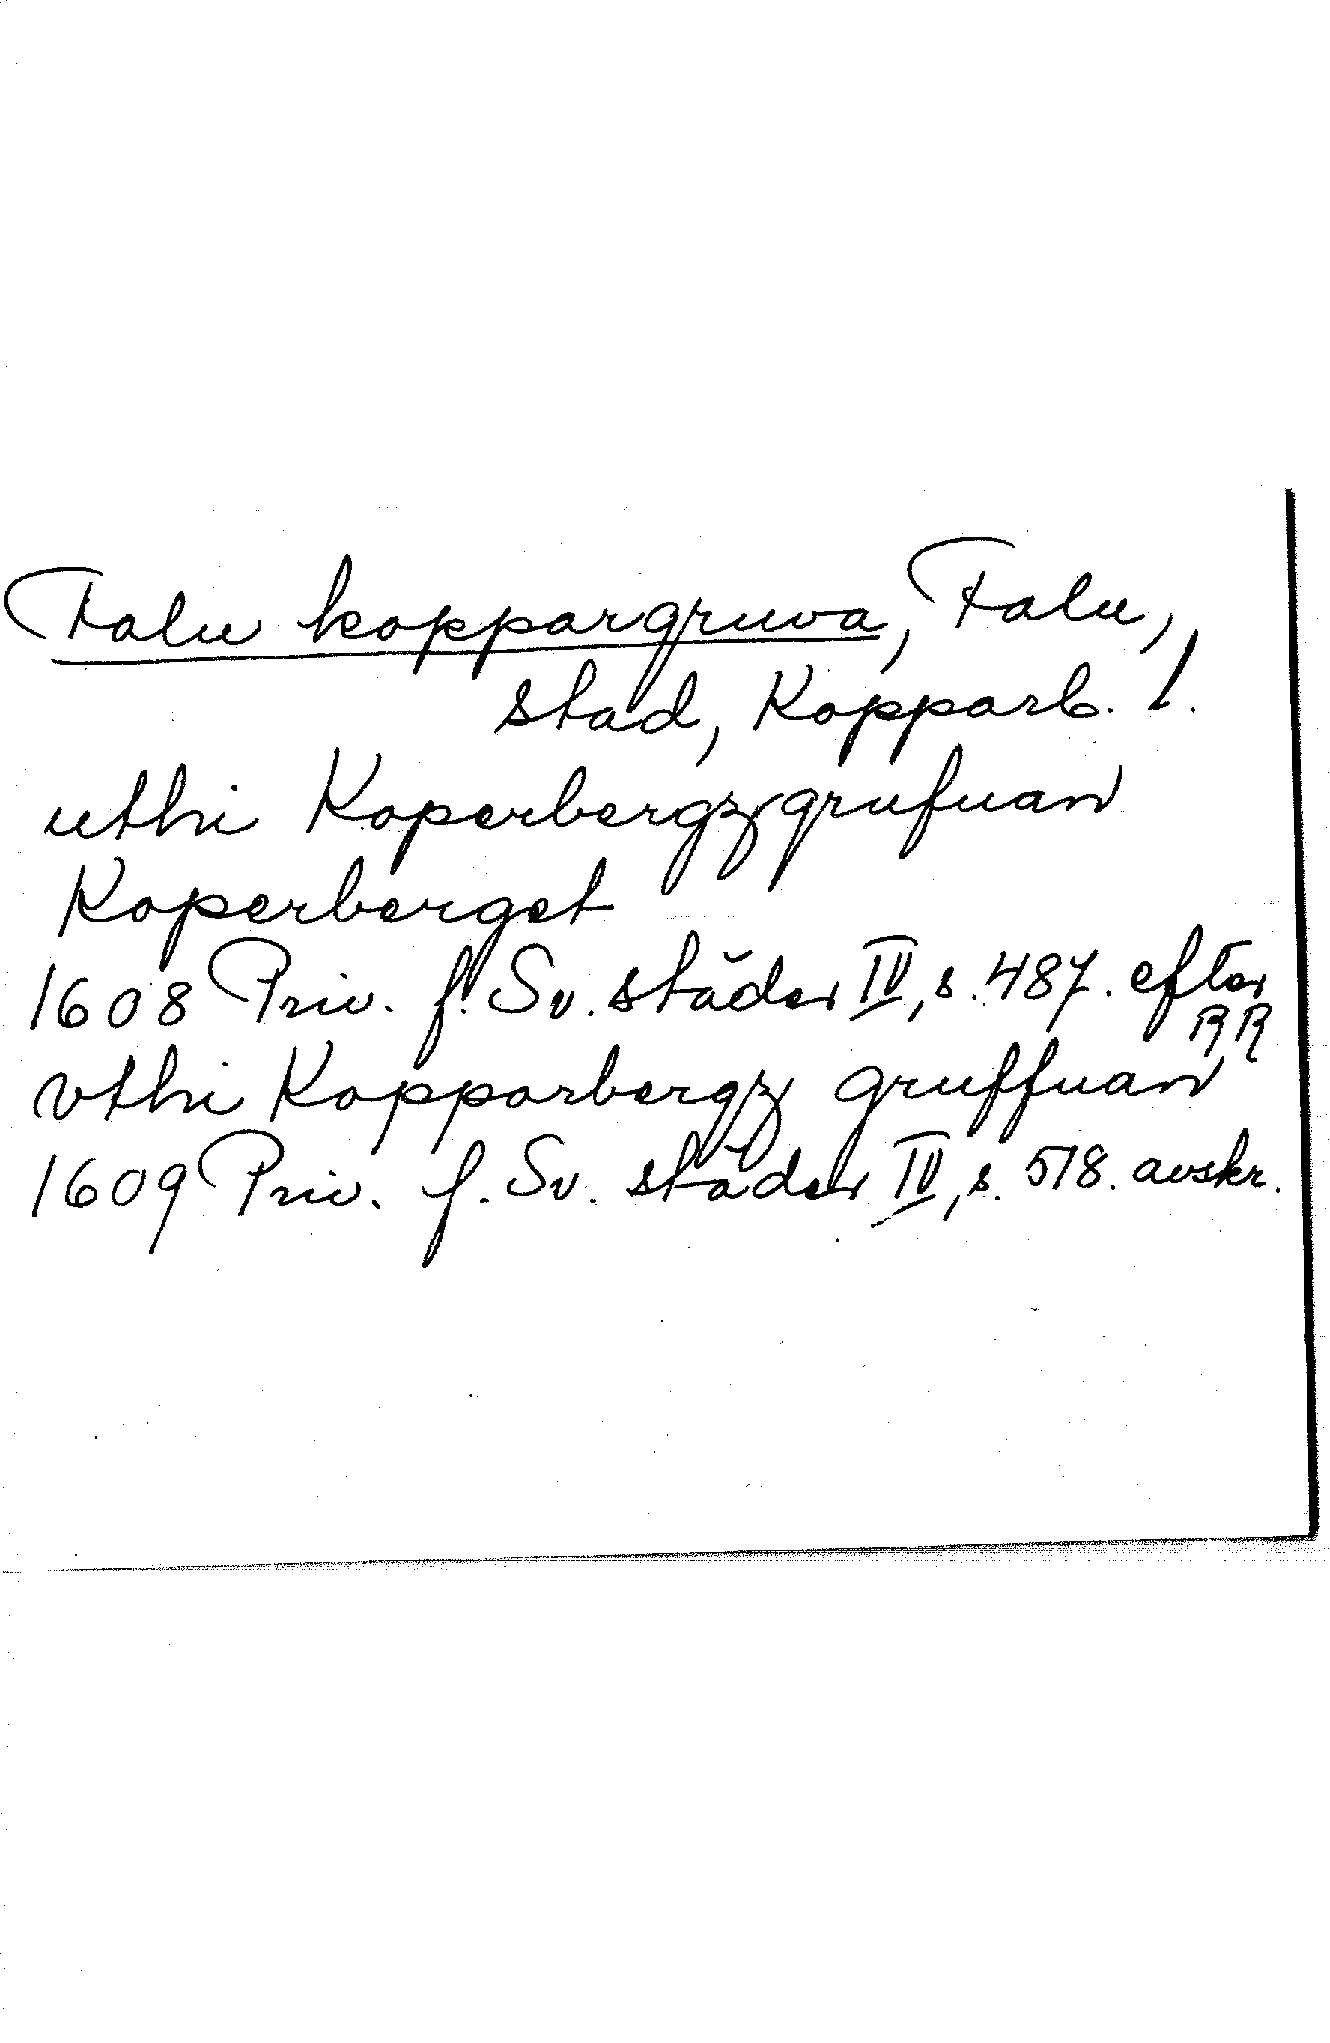 Falu koppargruva, Falu,
stad, Kopparb. l.
uthi Koperbergzgrufuan
Koperberget
1608 Priv. f. Sv. städer IV, s. 487. efter
RR
vthi Kopparbergz gruffuan
1609 Priv. f. Sv. städer IV, s. 518. avskr.